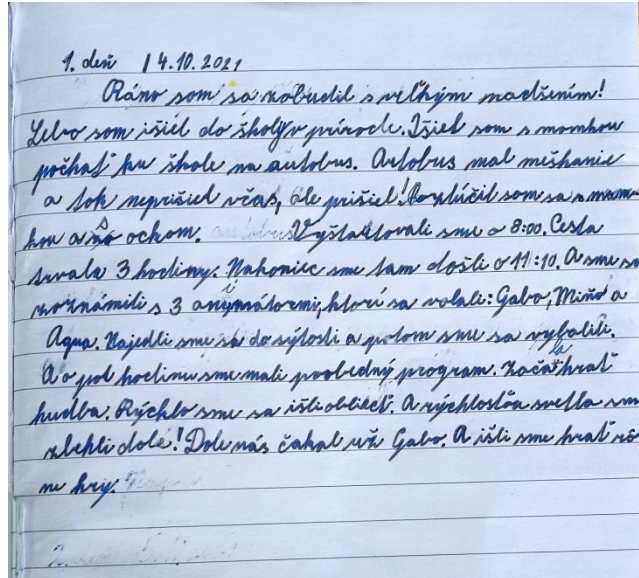 1. deň 14.10.2021
Ráno som sa zobudil s veľkým nadšením!
Lebo som išiel do školy v prírode. Išiel som s mamkou
počkať ku škole na autobus. Autobus mal meškanie
a tak neprišiel včas, ale prišiel! Rozlúčil som sa s mam-
kou a s ockom. Vyštartovali sme o 8:00. Cesta
trvala 3 hodiny. Nakoniec sme tam došli o 11:10. A sme sa
zoznámili s 3 animátormi, ktorí sa volali: Gabo, Miňo a
Agua. Najedli sme sa do sýtosti a potom sme sa vybalili.
A o pol hodinu sme mali poobedný program. Začala hrať
hudba. Rýchlo sme sa išli obliecť. A rýchlosťa svetla sme
zbehli dole! Dole nás čakal už Gabo. A išli sme hrať rôz
ne hry.